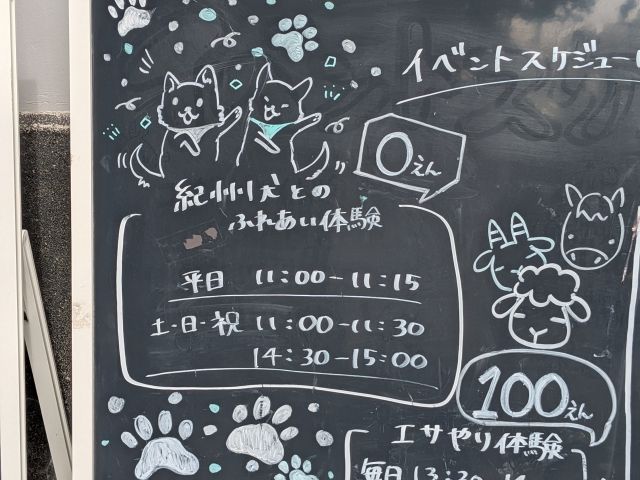 イベントスケジュー
0えん
紀州犬との
ふれあい体験
平日 11:00-11:15
土・日・祝 11:00-11:30
14:30-15:00
100えん
エサやり体験
毎日 13:30-14